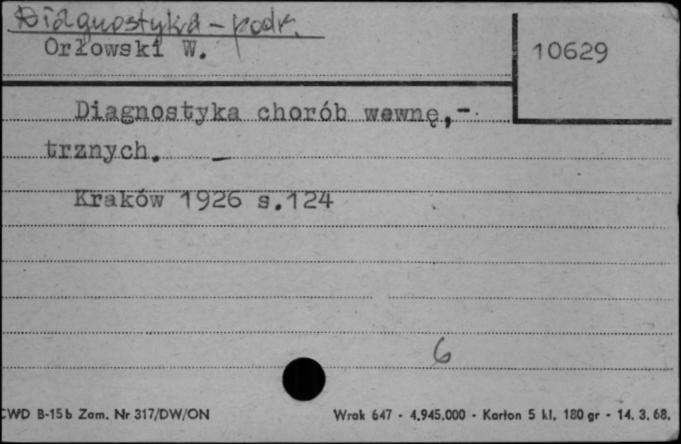 Diagnostyka - podr.
Orłowski W.
10629
Diagnostyka chorób wewnę,-
trznych. -
Kraków 1926 s.124
6
CWD B-15b Zam. Nr 317/DW/ON
Wrak 647 - 4.945.000 - Karton 5 kl. 180 gr - 14. 3. 68.